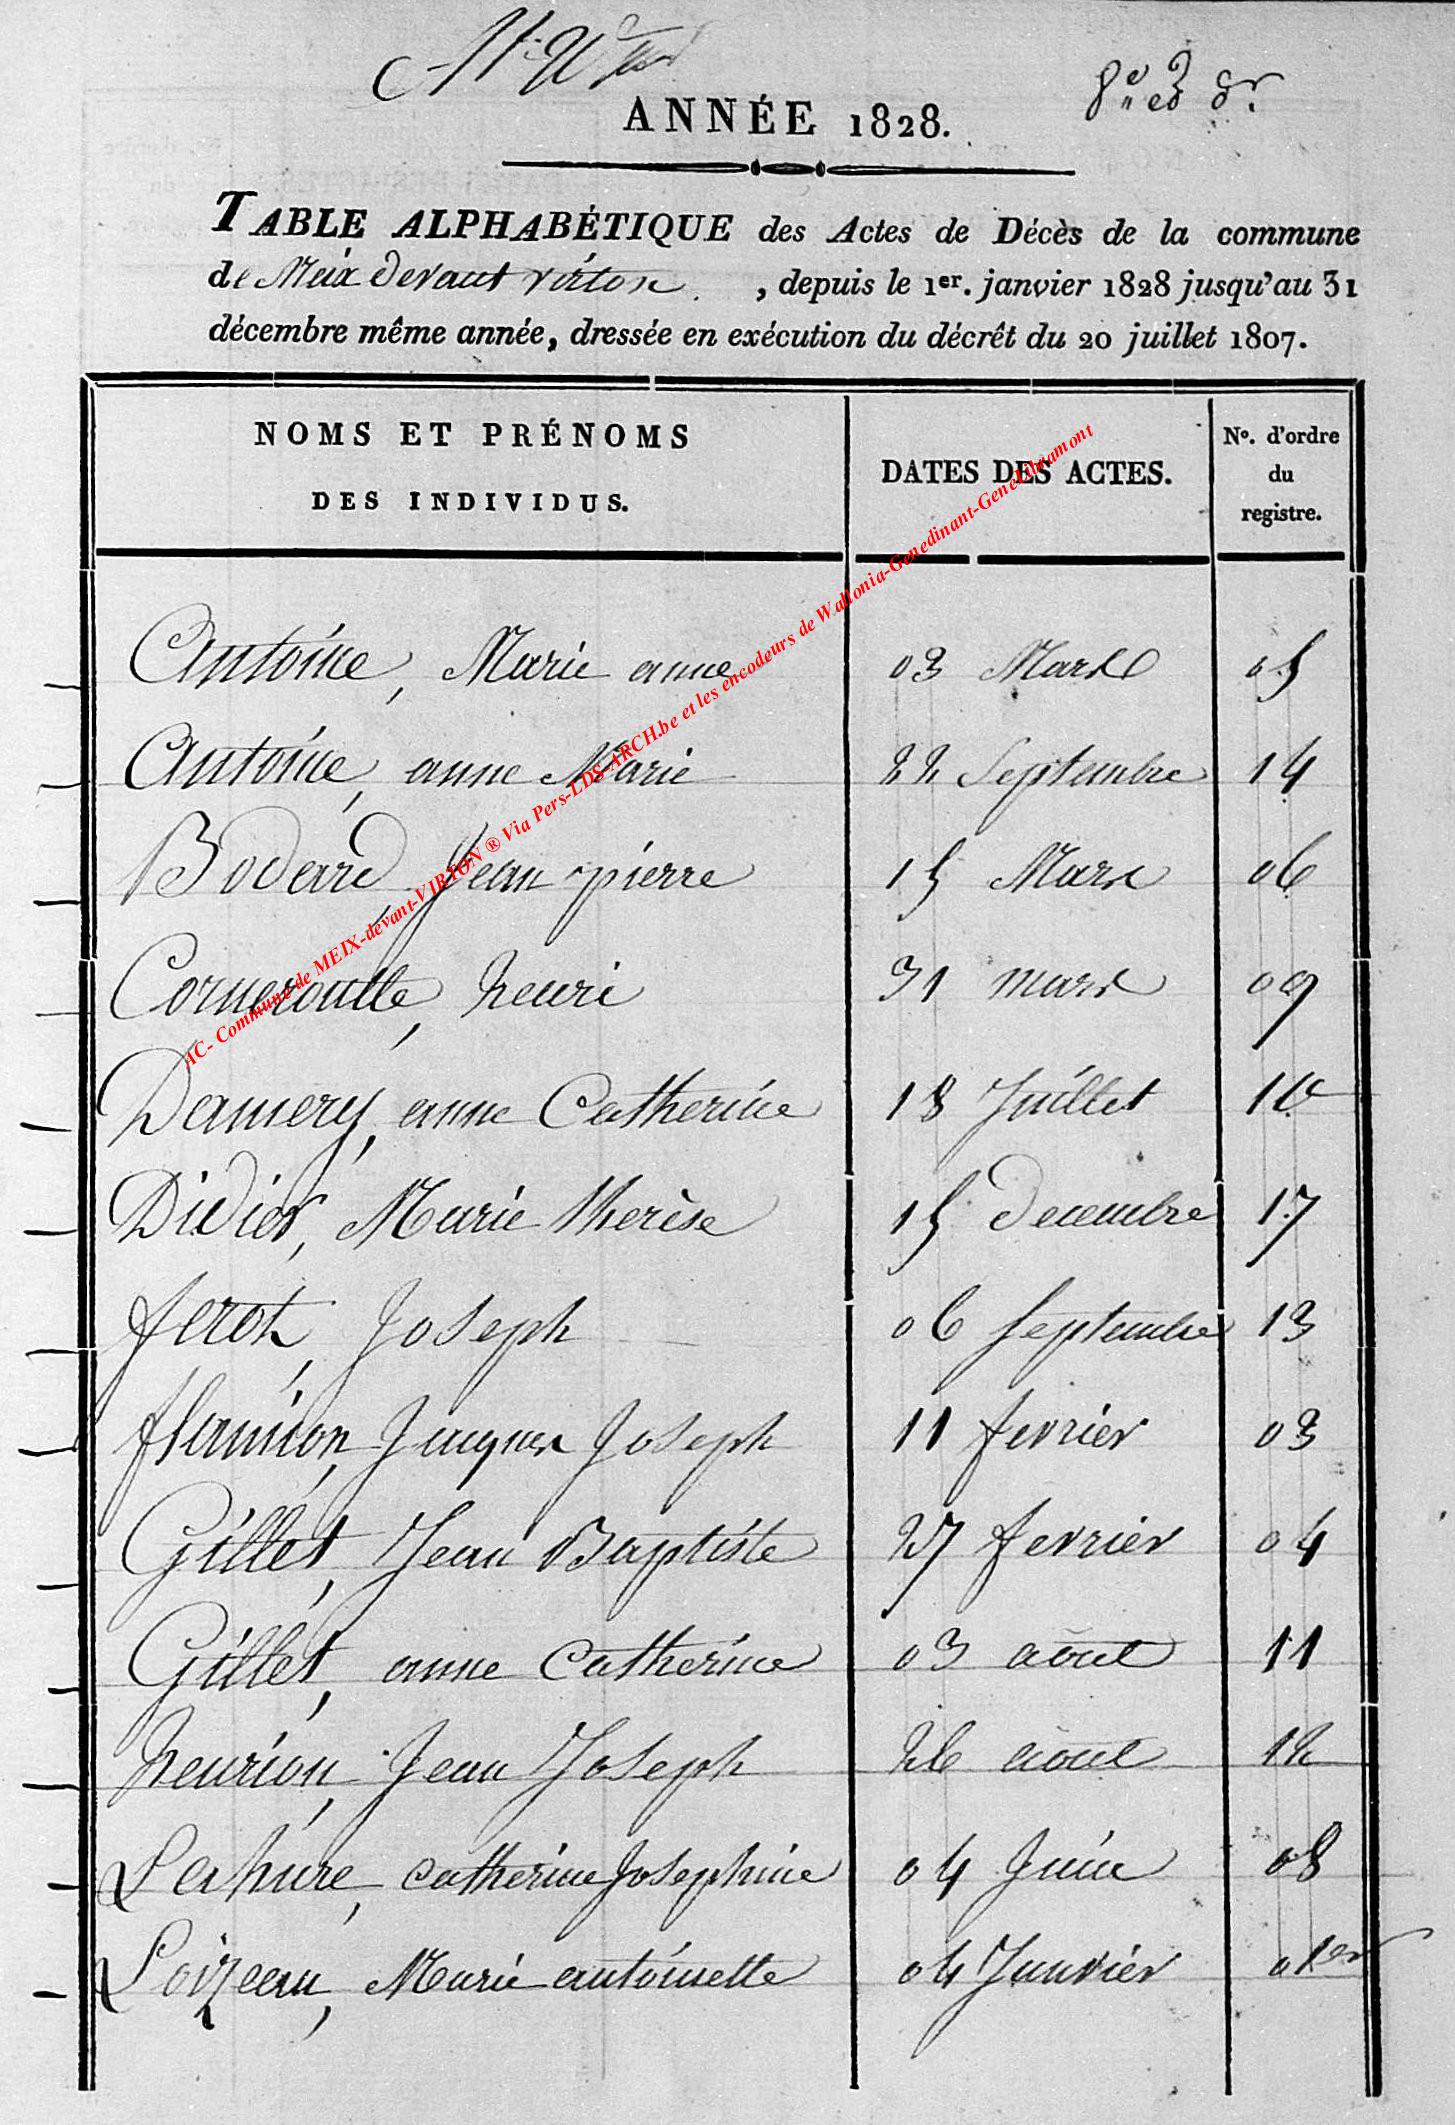 ANNÉE 1828.
TABLE ALPHABÉTIQUE des Actes de Décès de la commune
de Meix devant virton , depuis le 1er. janvier 1828 jusqu'au 31
décembre même année, dressée en exécution du décrêt du 20 juillet 1807.
NOMS ET PRÉNOMS
DES INDIVIDUS.
DATES DES ACTES.
No. d'ordre
du
registre.
AC- Commune de MEIX-devant-VIRTON ® Via Pers-LDS-ARCH.be et les encodeurs de Wallonia-Genedinant-GeneLibramont
Antoine, Marie anne 03 Mars 05
Antoine, anne Marie 22 Septembre 14
Bodard, Jean pierre 15 Mars 06
Corneroutte, henri 31 mars 09
Damery, anne Catherine 18 Juillet 10
Didier, Marie therèse 15 decembre 17
ferot, Joseph 06 Septembre 13
flamion, Jacques Joseph 11 fevrier 03
Gillet, Jean Baptiste 27 fevrier 04
Gillet, anne Catherine 03 aout 11
henrion, Jean Joseph 26 aout 12
Lahure, catherine Josephine 04 Juin 08
Loizeau, Marie antoinette 04 Janvier 01er